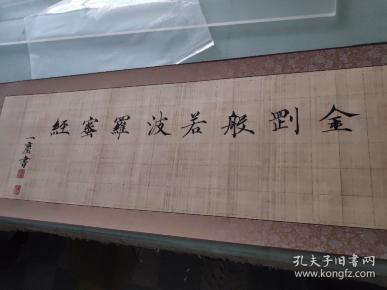 金剛般若波羅蜜經
一塵書
孔夫子旧书网
www.kongfz.com